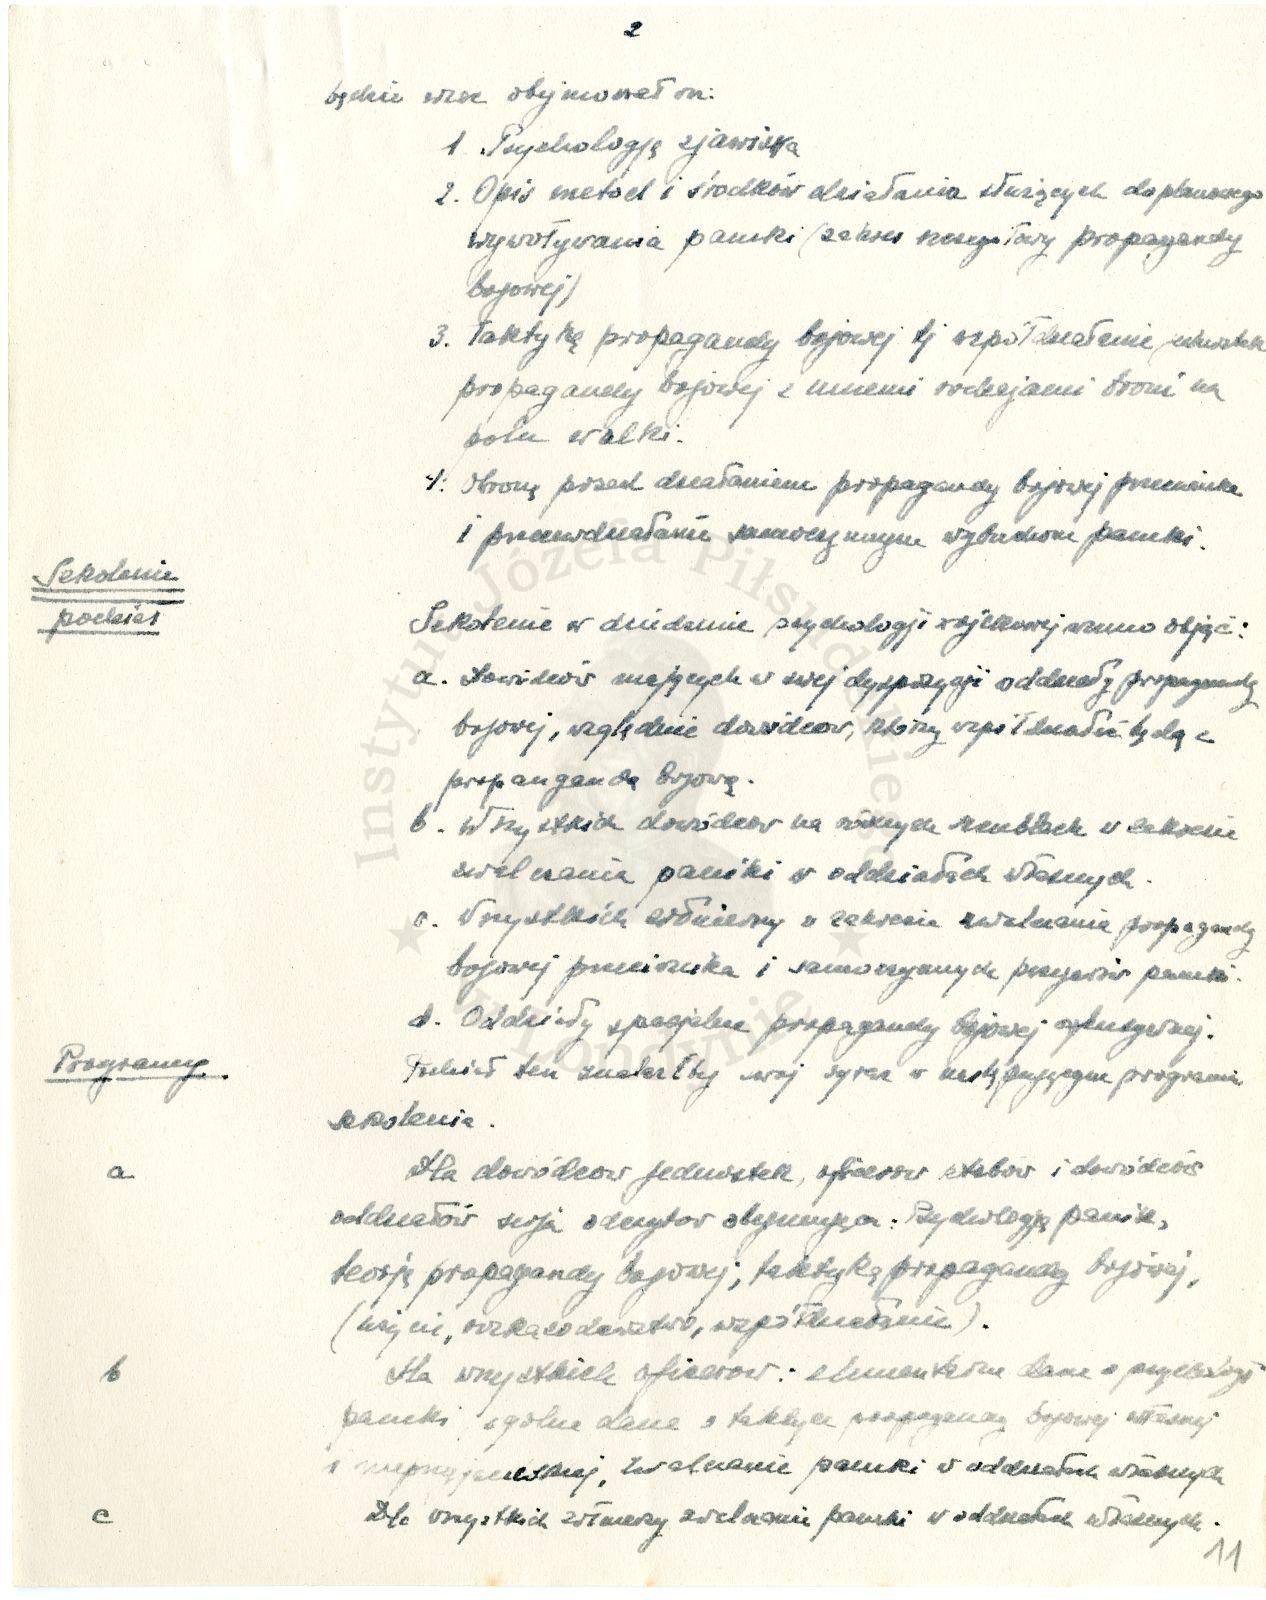 2
będzie więc obejmował on:
1. Psychologję zjawiska
2. Opis metod i środków działania służących do planowego
wywoływania paniki (zakres szczegółowy propagandy
bojowej)
3. Taktykę propagandy bojowej tj współdziałanie
propagandy bojowej z innemi rodzajami broni na
polu walki.
4. Obronę przed działaniem propagandy bojowej przeciwnika
i przeciwdziałanie samoczynnym wybuchom paniki.
Szkolenie
podział
Szkolenie w dziedzinie psychologji wojskowej winno objąć:
a. Dowódców mających w swej dyspozycji oddziały propagandy
bojowej, względnie dowódców, którzy współdziałać będą z
propangandą bojową.
b. Wszystkich dowódców na różnych szczeblach w zakresie
zwalczania paniki w oddziałach własnych.
c. Wszystkich żołnierzy w zakresie zwalczania propagandy
bojowej przeciwnika i samoczynnych przejawów paniki.
d. Oddziały specjalne propagandy bojowej ofensywnej.
Programy.
Podział ten znalazłby swój wyraz w następującym programie
szkolenia.
a
Dla dowódców jednostek, oficerów sztabów i dowódców
oddziałów serja odczytów obejmująca: Psychologję paniki,
teorję propagandy bojowej, taktykę propagandy bojowej,
(użycie, rozkazodawstwo, współdziałanie).
b
Dla wszystkich oficerów: elementarne dane o psychologji
paniki, ogólne dane o taktyce propagandy bojowej własnej
i nieprzyjacielskiej, zwalczanie paniki w oddziałach własnych
c
Dla wszystkich żołnierzy zwalczanie paniki w oddziałach własnych.
11
Instytut Józefa Piłsudskiego
w Londynie